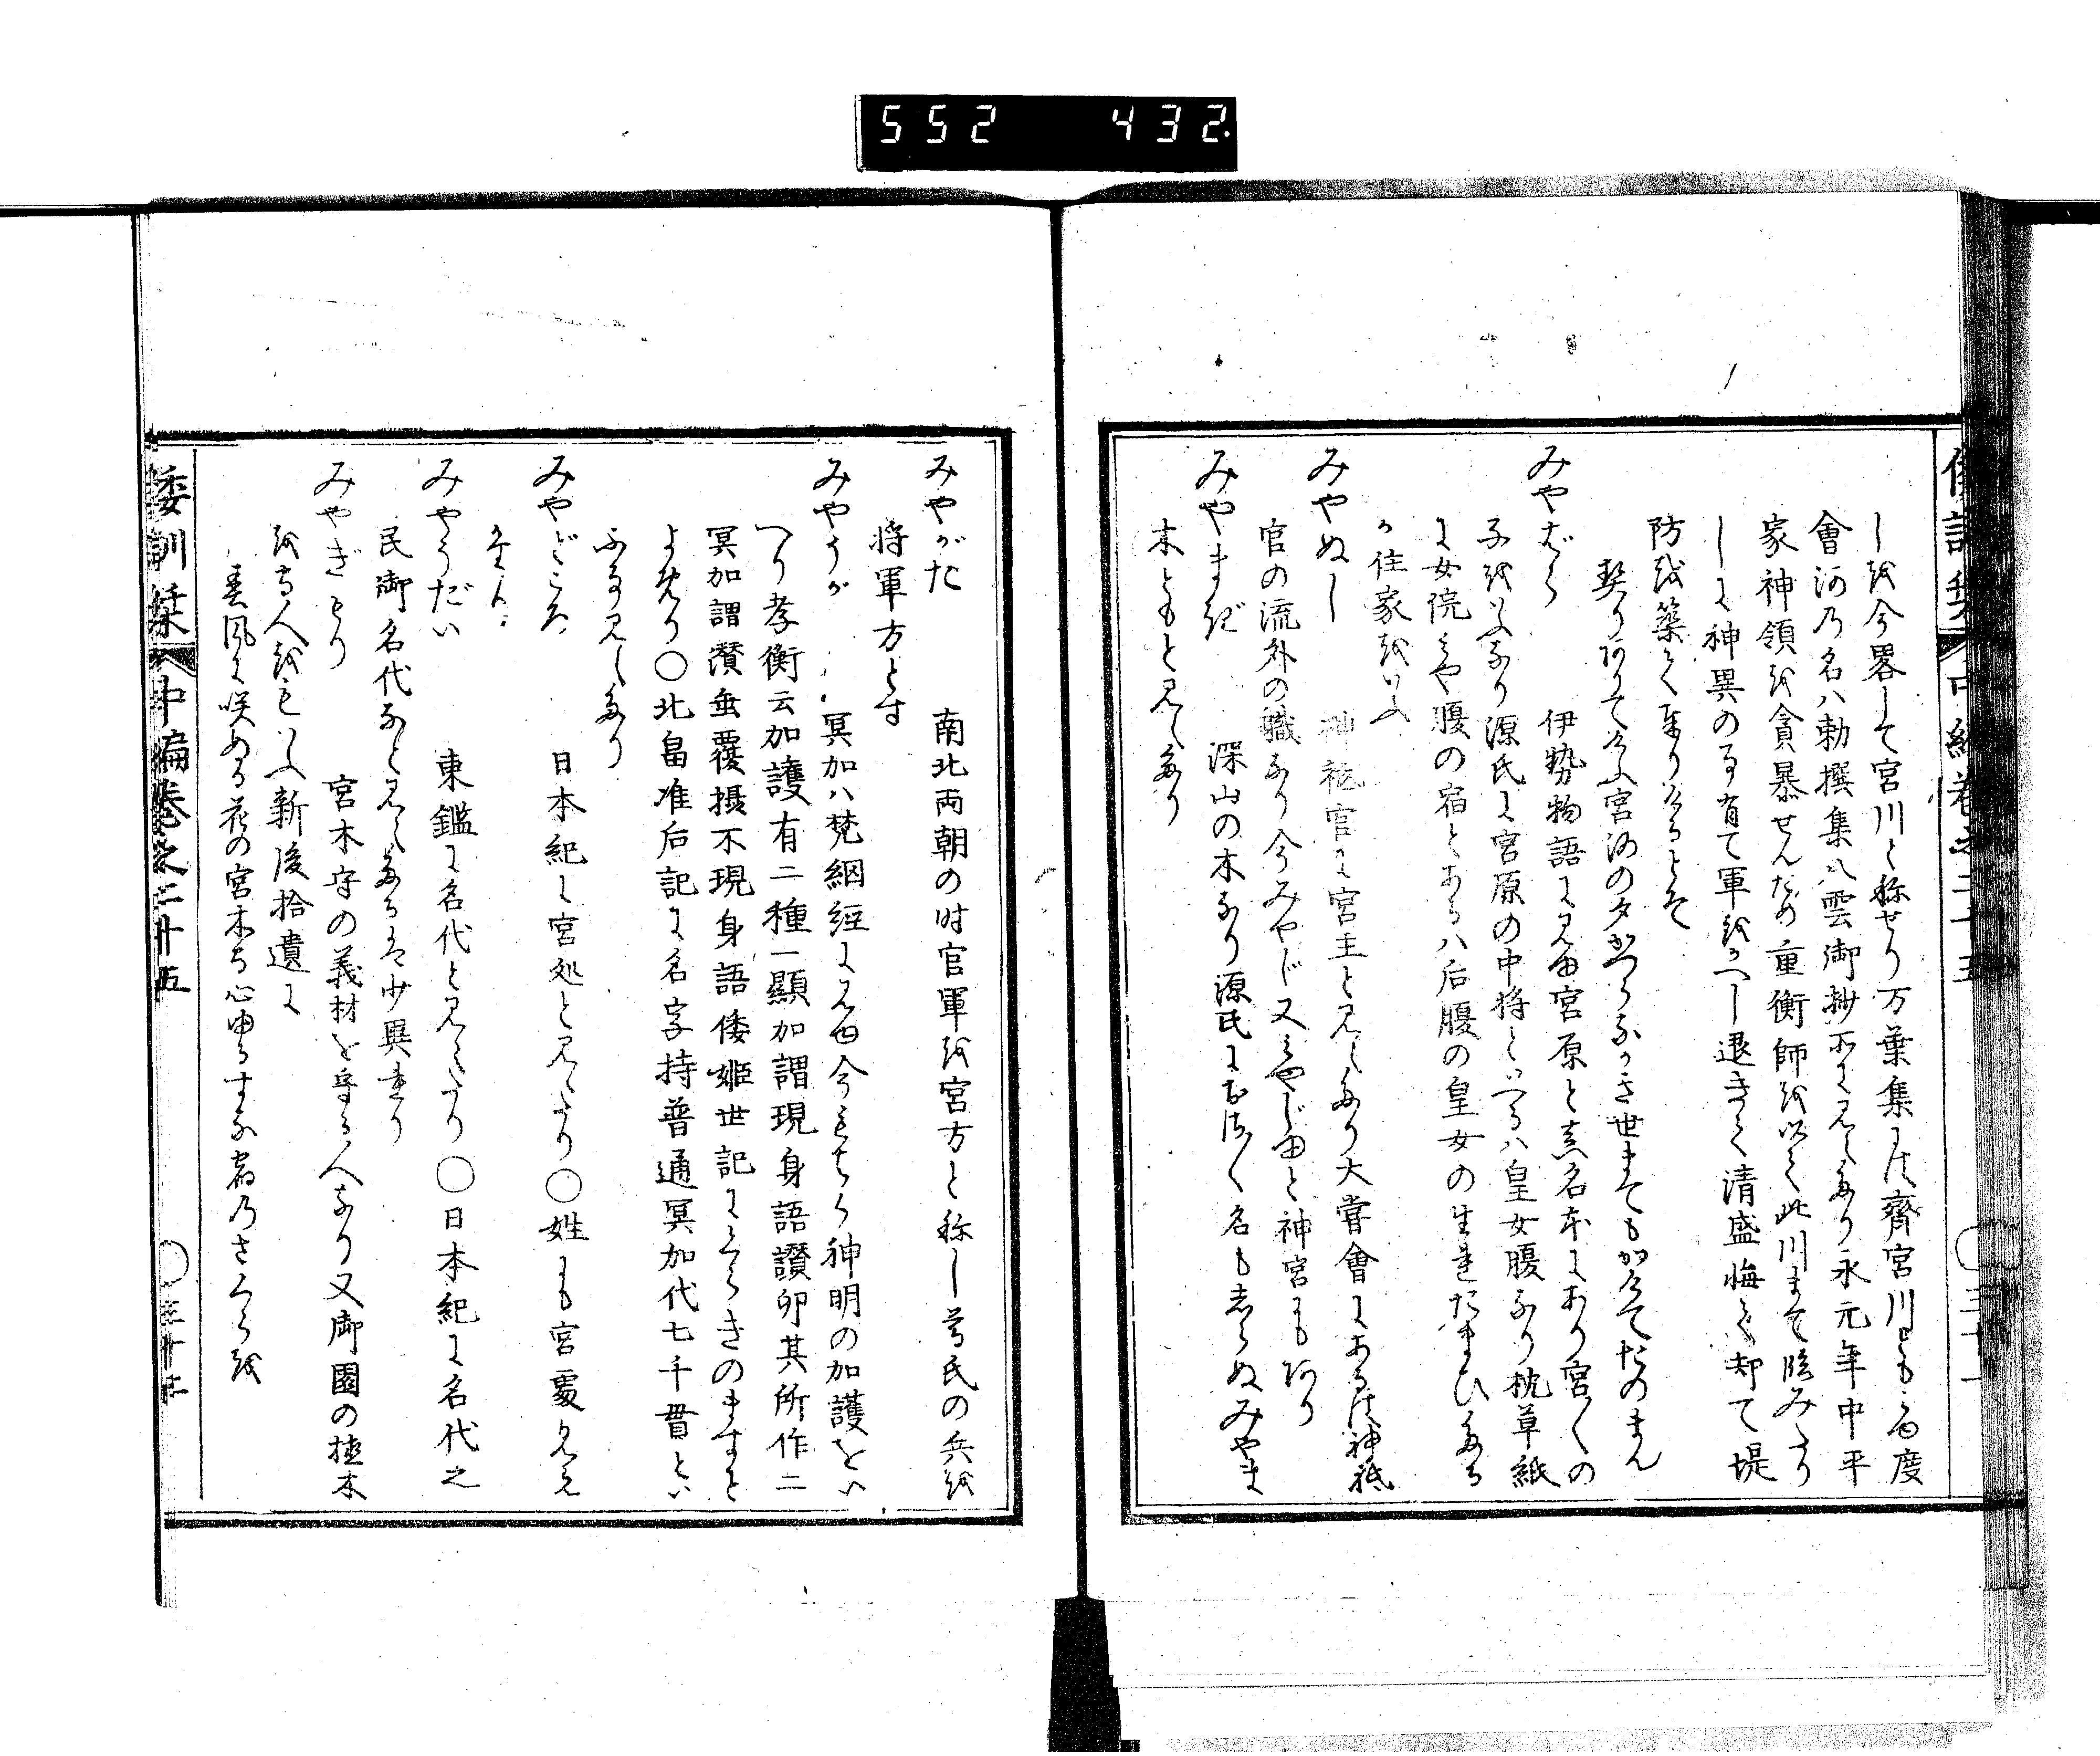 552 432
しを今畧して宮川と称せり万葉集には齊宮川とも
會河の名ハ勅撰集八雲御抄に見えたり永元年中平
家神領を貪暴せんため重衡師を以て此川まて臨みたり
しに神異の事有て軍をかへし退きて清盛悔て却て堤
防を築て奉りけるとそ
契りありてけふ宮河の夕かつらなかき世まてもかけてたのまん
みやばら 伊勢物語に見ゆ宮原と真名本にあり宮〳〵の
子をいふなり源氏に宮原の中将といへるハ皇女腹なり枕草紙
に女院みや腹の宿とあるハ后腹の皇女の生れたまひたる
か住家をいふ
みやぬし 神祇官に宮主と見えたり大嘗會にあるは神祇
官の流外の職なり今みやじ又みやじゆと神宮にもあり
みやまぎ 深山の木なり源氏に
名もしらぬみやま
木ともと見えたり
みやがた 南北両朝の時官軍を宮方と称し尊氏の兵を
将軍方とす
みやうが 冥加ハ梵網経に見ゆ今もはら神明の加護をい
へり孝衡云加護有二種一顯加謂現身語讃卯其所作二
冥加謂潛垂覆摂不現身語倭姫世記にくらきのますと
よめり○北畠准后記に名字持普通冥加代七千貫とい
ふ事見えたり
みやどころ 日本紀に宮処と見えたり○姓にも宮處見え
みやうだい 東鑑に名代と見えたり○日本紀に名代之
民御名代なと見えたるは少異なり
みやぎもり 宮木守の義材を守る人なり又御園の植木
を守る人をもいふ新後拾遺に
春風に咲ぬる花の宮木もり心ゆるすな宿のさくらを
倭訓栞 中編巻之二十五